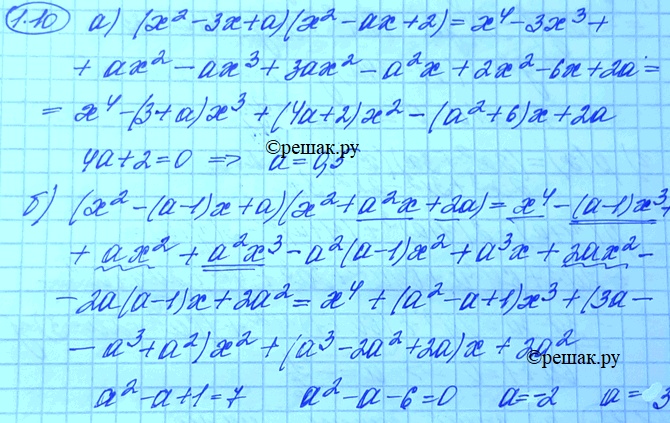 1.10 а) (x² - 3x + a)(x² - ax + 2) = x⁴ - 3x³ +
+ ax² - ax³ + 3ax² - a²x + 2x² - 6x + 2a =
= x⁴ - (3 + a)x³ + (4a + 2)x² - (a² + 6)x + 2a
4a + 2 = 0 => a = 0,5
©решак.ру
б) (x² - (a-1)x + a)(x² + a²x + 2a) = x⁴ - (a-1)x³ +
+ ax² + a²x³ - a²(a-1)x² + a³x + 2ax² -
- 2a(a-1)x + 2a² = x⁴ + (a² - a + 1)x³ + (3a -
- a³ + a²)x² + (a³ - 2a² + 2a)x + 2a²
©решак.ру
a² - a + 1 = 7 a² - a - 6 = 0 a = -2 a = 3